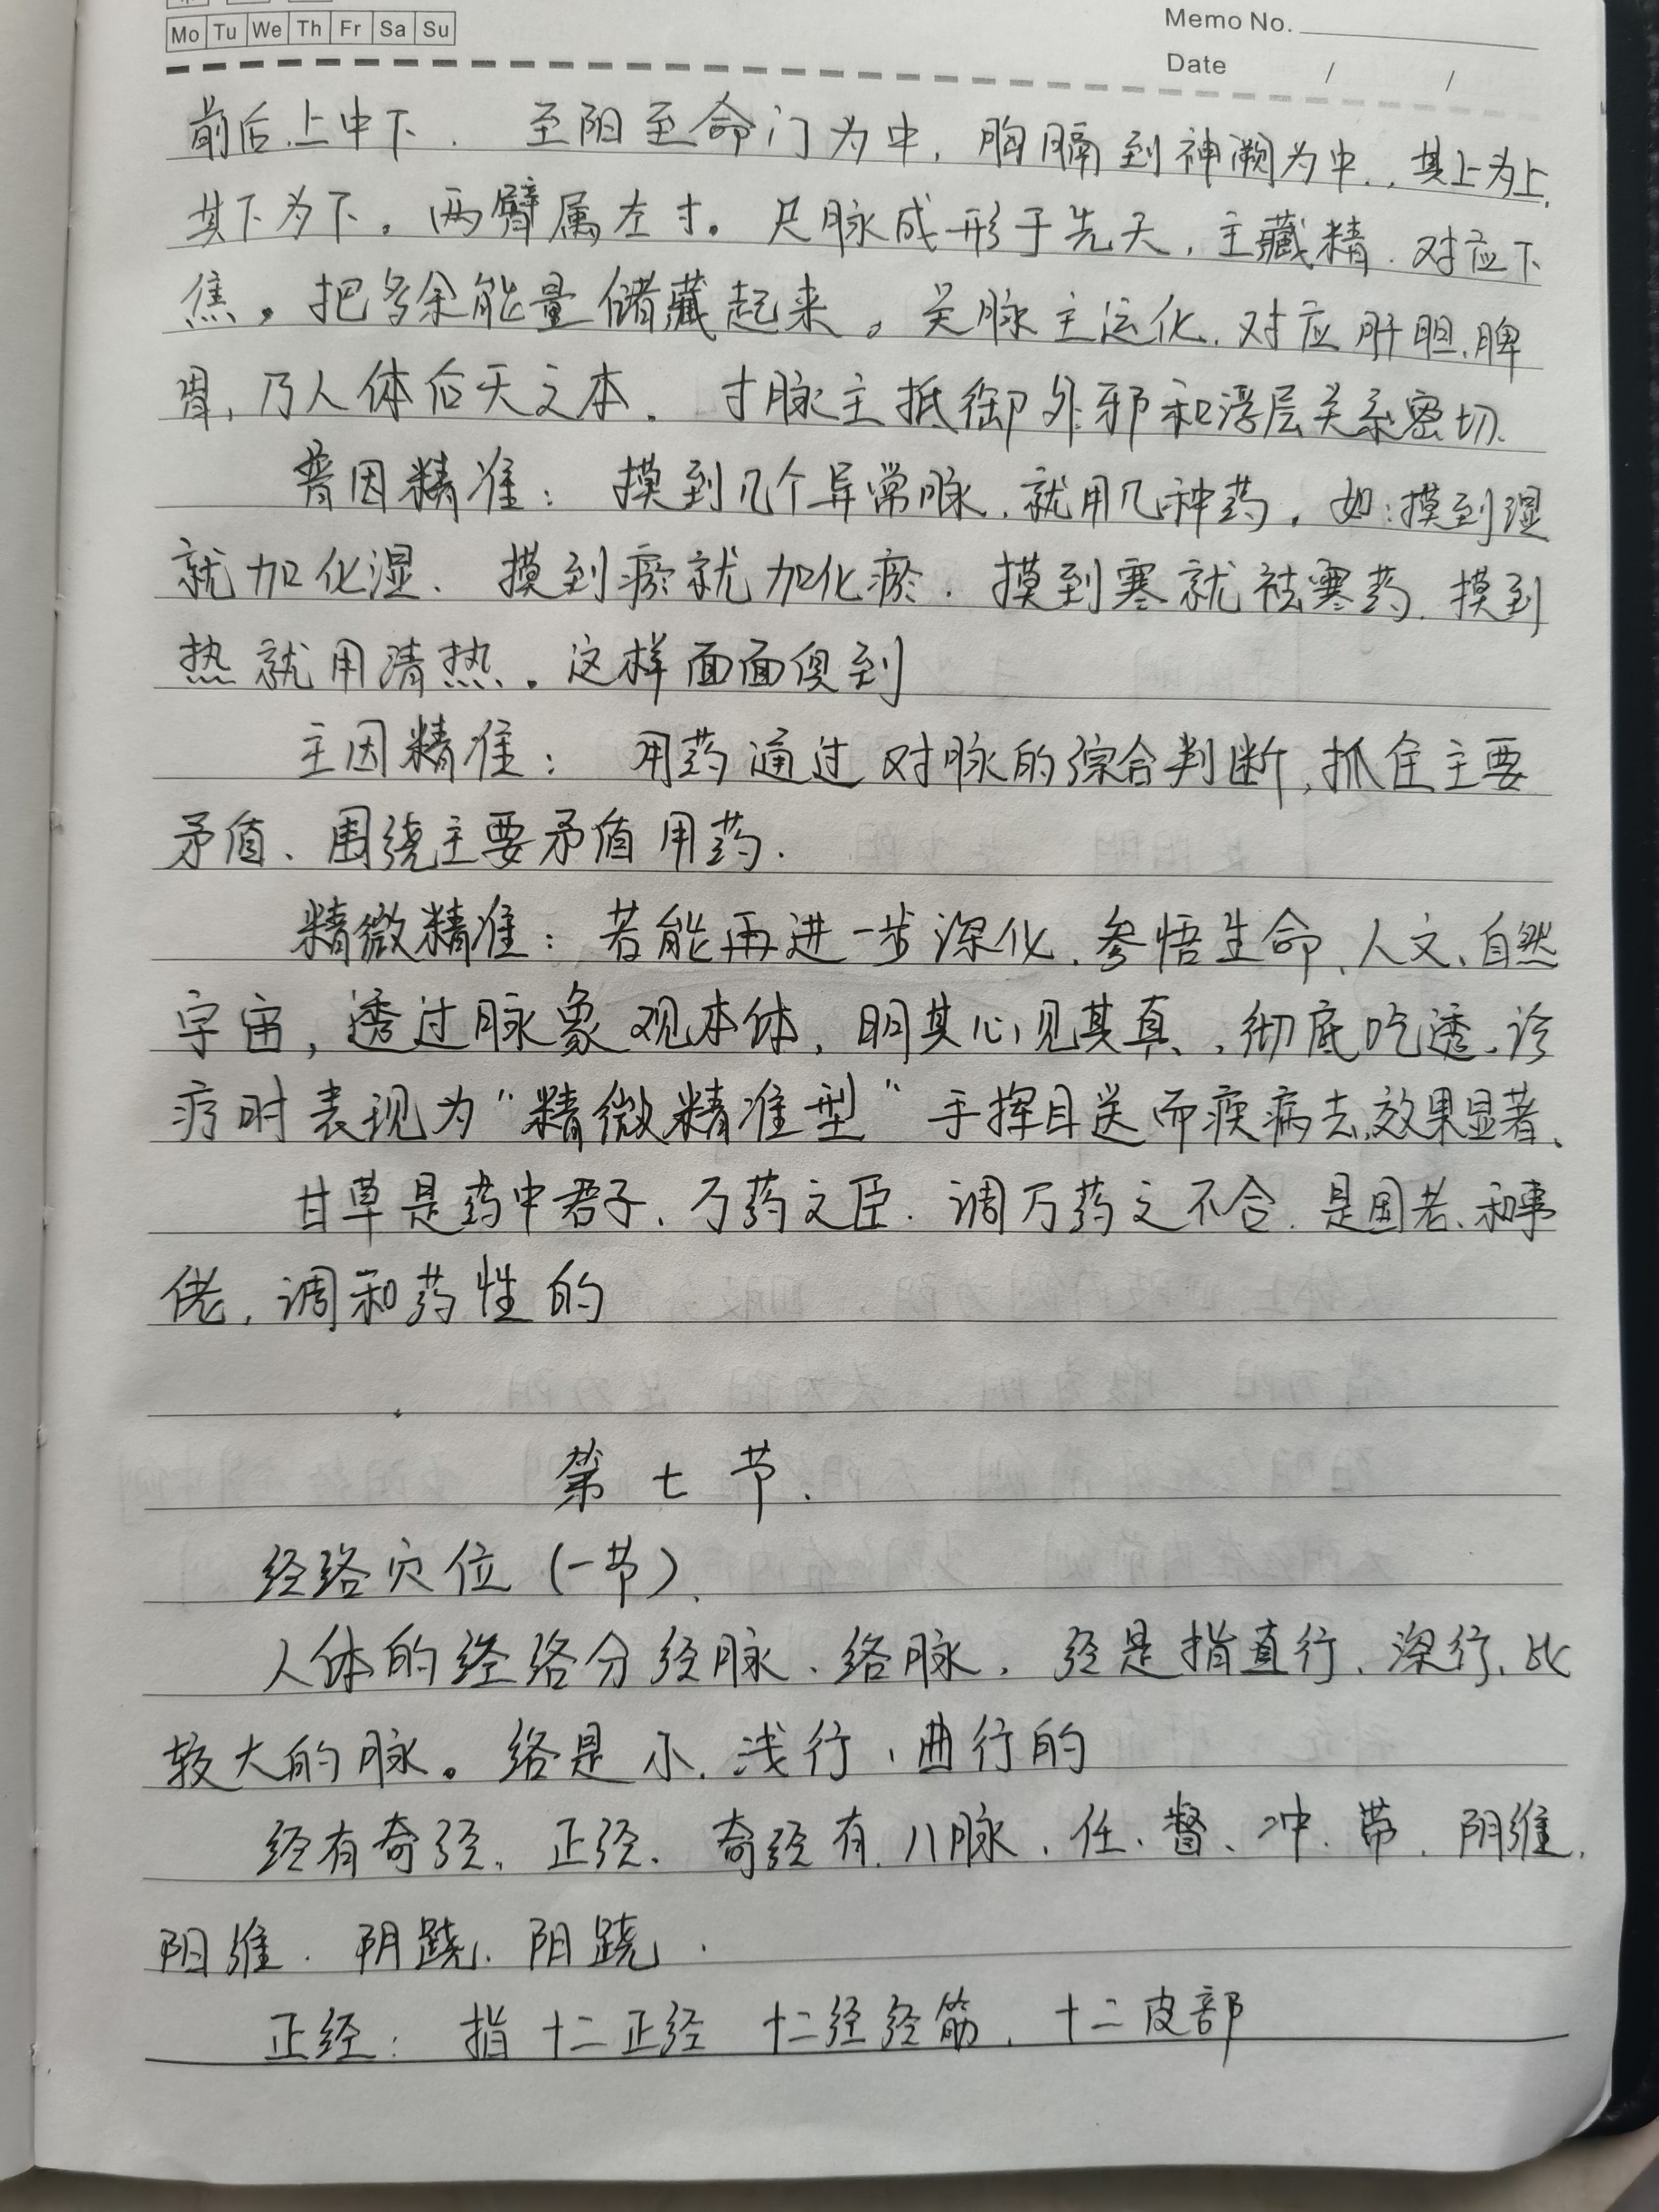 Mo Tu We Th Fr Sa Su
Memo No.
Date / /
前后上中下. 至阳至命门为中, 胸膈到神阙为中., 其上为上,
其下为下。两臂属左寸。尺脉成形于先天, 主藏精. 对应下
焦。把多余能量储藏起来。关脉主运化. 对应肝胆、脾
胃, 乃人体后天之本. 寸脉主抵御外邪和浮层关系密切.
普因精准: 摸到几个异常脉, 就用几种药. 如:摸到湿
就加化湿. 摸到瘀就加化瘀. 摸到寒就祛寒药. 摸到
热就用清热. 这样面面俱到
主因精准: 用药通过对脉的综合判断, 抓住主要
矛盾、围绕主要矛盾用药.
精微精准: 若能再进一步深化、参悟生命、人文、自然
宇宙, 透过脉象观本体, 明其心见其真、, 彻底吃透. 诊
疗时表现为"精微精准型" 手挥目送而疾病去, 效果显著、
甘草是药中君子、万药之臣. 调万药之不合. 是国老、和事
佬, 调和药性的
第七节.
经络穴位 (一节).
人体的经络分经脉、络脉. 经是指直行、深行、比
较大的脉。络是小. 浅行、曲行的
经有奇经. 正经. 奇经有八脉. 任、督、冲、带. 阴维.
阳维. 阴跷. 阳跷.
正经: 指十二正经 十二经经筋. 十二皮部